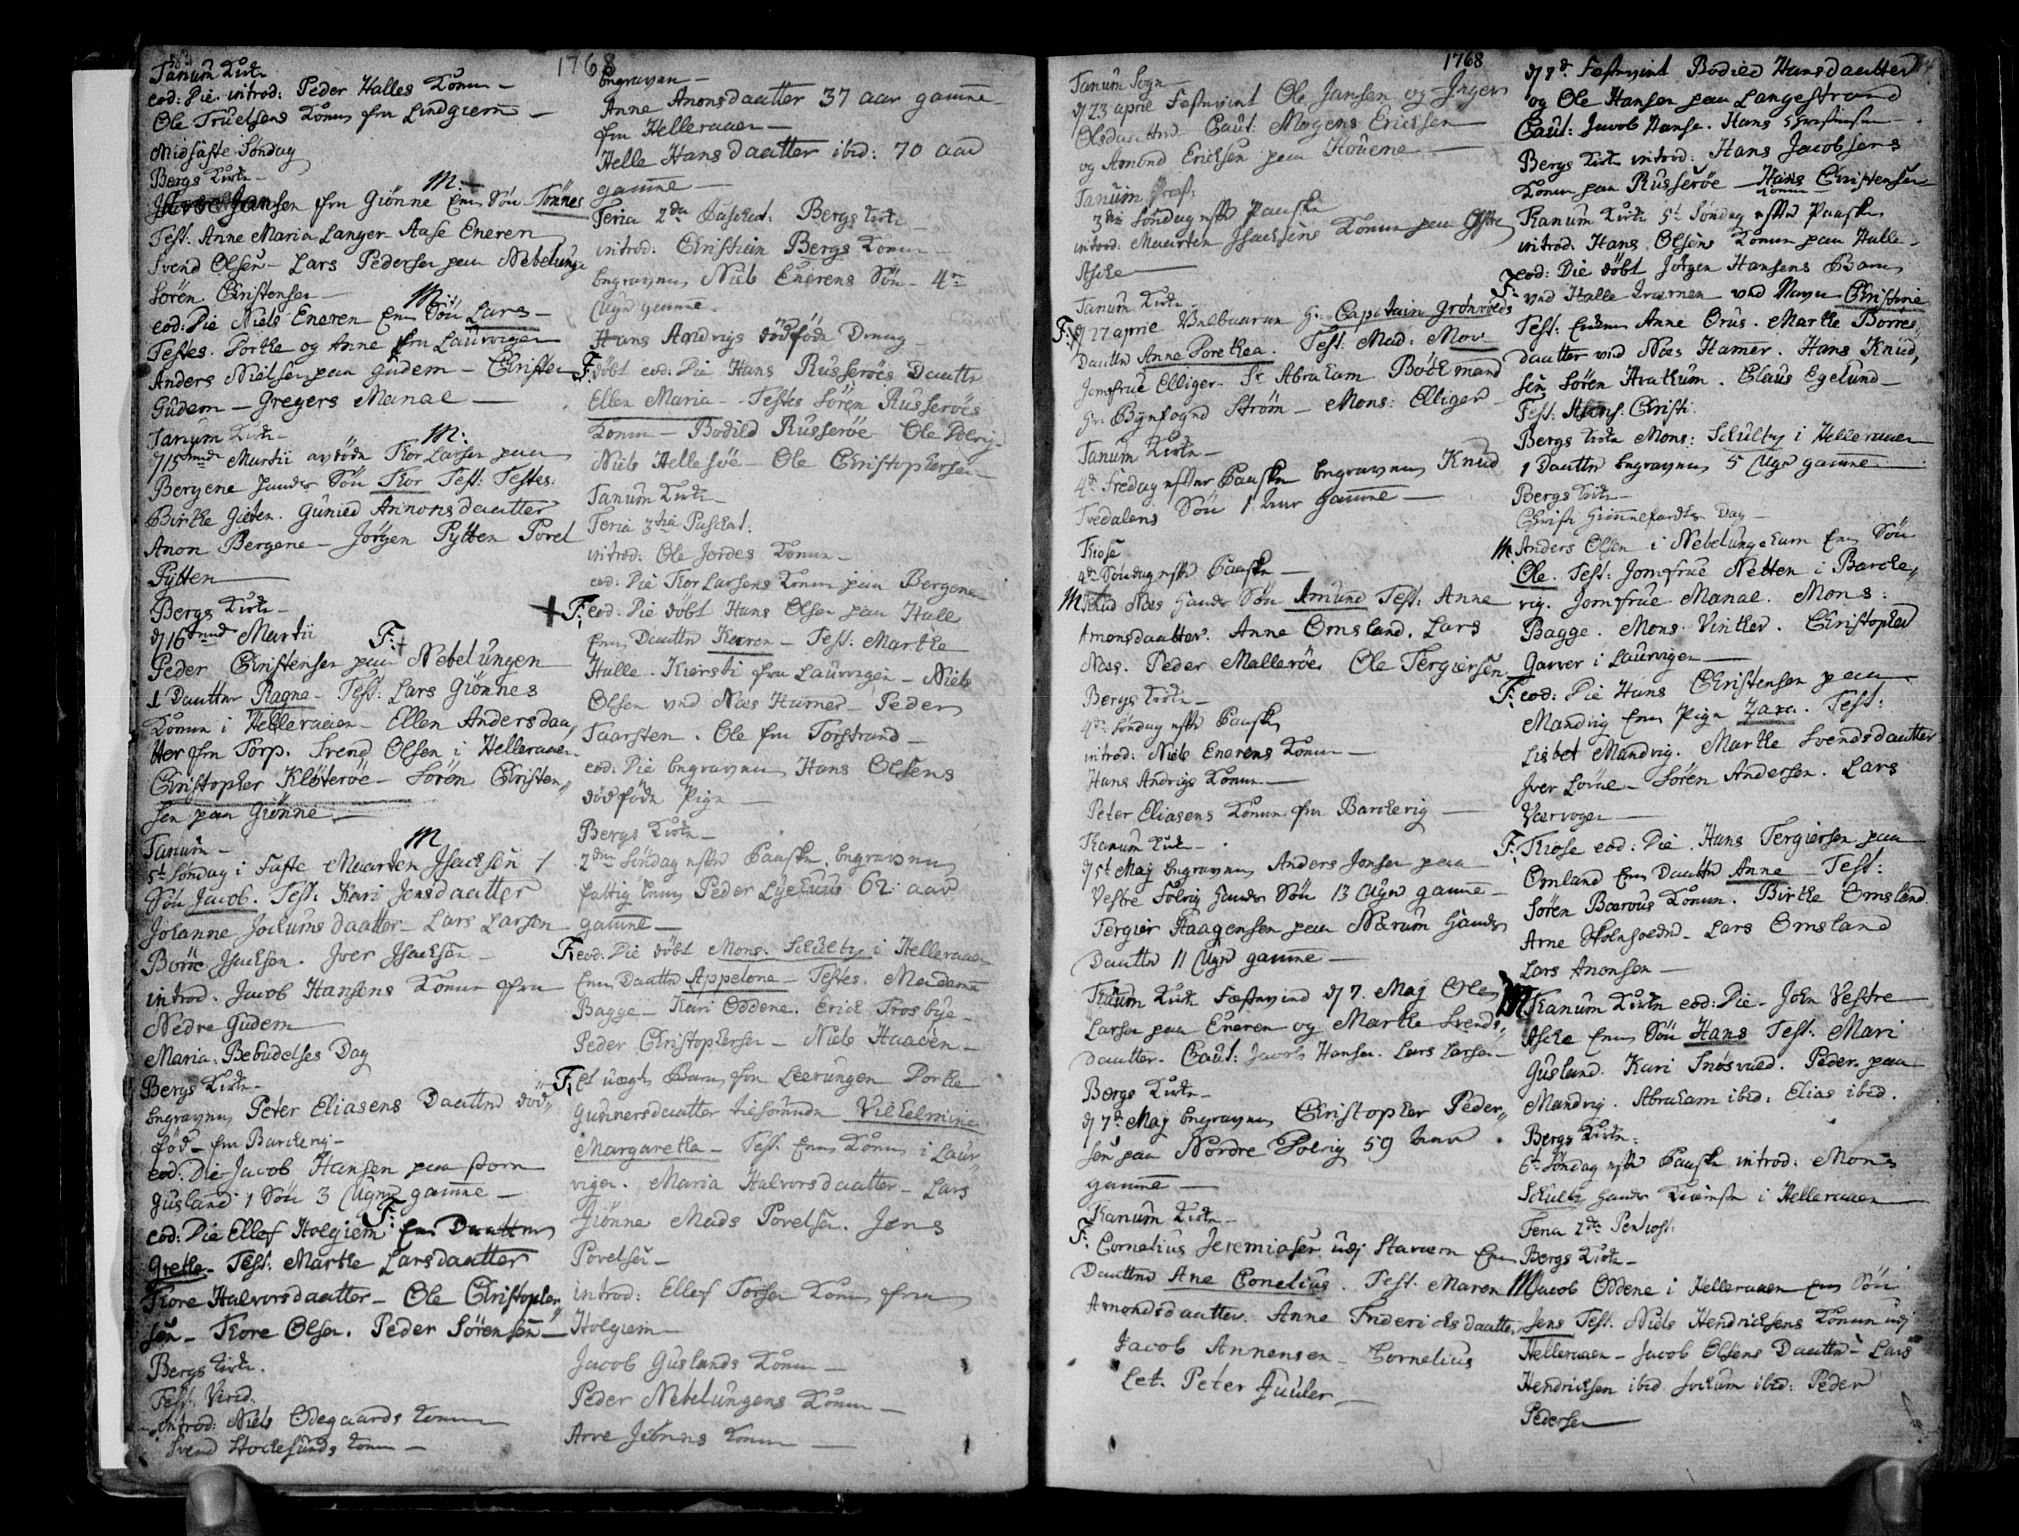 1768
Tanum Kirke
eod: Die introd: Peder Halles Konne
Ole Truelsens Konne fra Lindgiern
Midfaste Søndag
Bergs Kirke
M:
Jansen fra Giønne En Søn Tönnes
Test. Anne Maria Langer Aase Eneren
Svend Olsen - Lars Pedersen paa Nebelunge
Sören Christensen
M:
eod: Die Niels Eneren En Søn Lars
Testes. Dorthe og Anne fra Laurvigen
Anders Nielsen paa Gudem - Christen
Gudem - Gregers Manae
Tanum Kirke
M:
d 15 Martii Thor Larsen paa
Bergene hands Søn Thor Test: Testes.
Birthe Gieten. Gunild Annonsdaatter
Anon Bergene - Jörgen Pytten Povel
Pytten
Bergs Kirke
d 16 Martii
F:
Peder Christensen paa Nebelungen
1 Daatter Ragne - Test: Lars Giønnes
Konne i Helleraaen - Ellen Andersdaa,,
tter fra Torp. Svend Olsen i Helleraaen
Christopher Kløterøe - Sörön Christen,,
sen paa Giønne
Tanum
M
5t Søndag i Faste Maarten Jsachsön 1
Søn Jacob. Test: Kari Jensdaatter
Johanne Jochumsdaatter - Lars Larsen
Börre Jsachsen. Jver Jsachsen
introd: Jacob Hansens Konne fra
Nedre Gudem
Maria Bebudelses Dag
Bergs Kirke
begraven Peter Eliasens Daatter död,,
fød fra Barckerig
eod: Die Jacob Hansen paa store
Gusland 1 Søn 3 Uger gamme
F:
eod: Die Ellef Holgiem En Daatter
Grethe - Test: Marthe Larsdaatter
Thore Halvorsdaatter - Ole Christopher
sen - Thore Olsen. Peder Sörensen
Bergs Kirke.
Fest: Virid:
introd: Niels Ødegaards Konne
Svend Stochesunds Konne
begraven
Anne Anonsdaatter 37 aar gamme
fra Helleraaen
Helle Hansdaatter ibid: 70 aar
gamme
Feria 2da Paschat: Bergs Kirke
introd: Christian Bergs Konne
begraven Niels Enerens Søn - 4re
Uger gamme.
Hans Andrigs dødfødte Dreng
F: döbt eod: Die Hans Russeröes Daatter
Ellen Maria - Testes Sören Russeröes
Konne - Bodild Russeröe Ole Polrig
Niels Hellesöe - Ole Christophersen
Tanum Kirke
Feria 3tia Paschat:
introd: Ole Jordes Konne
eod: Die Thor Larsens Konne paa Bergene
F: eod: Die döbt Hans Olsen paa Halle
En Daatter Karen - Test. Marthe
Halle. Kiersti fra Laurvigen - Niels
Olsen ved Næs Hamer - Peder
Taarsten. Ole fra Torstrand
eod: Die begraven Hans Olsens
dödfødte Pige
Bergs Kirke
2den Søndag efter Paaske begraven
fattig Peder Lysehuus 62 aar
gamme
F: eod: Die döbt Mons: Schultz i Helleraaen
En Daatter Appelone - Testes. Madame
Bagge - Kari Oddene. Erick Trosbye
Peder Christophersen - Niels Haaven
F: et uægte Barn fra Leerungen Dorthe
Gunnersdaatter tilhørende Vilhelmine
Margaretha - Test: En Konne i Laur,,
vigen. Maria Halvorsdaatter - Lars
Jiönne Mads Povelsen. Jens
Povelsen
introd: Ellef Torsen Konne fra
Holgiem
Jacob Guslands Konne
Peder Nebelungens Konne
Arve Jiönnes Konne
1768
Tanum Sogn
d 23 april Festeviet Ole Jansen og Jnger
Olsdaatter Caut: Mogens Ericksen
og Amond Ericksen paa Houene
Tanum
3die Søndag efter Paaske
introd: Maarten Jsachsens Konne paa Østre
Asche
Tanum Kirke
F: d 27 april Velbaarne Hr: Capitain Grönvolds
Daatter Anne Dorethea. Test: Mad: Mov
Jomfrue Elliger - Sr Abraham Böckmand
Hr: Byefogd Ström - Mons: Elliger
Tanum Kirke
4de Fredag efter Paaske begraven Knud
Tvedalens Søn 1 aar gamme
Kiose
4de Søndag efter Paaske
M Knud Næs hands Søn Amund Test: Anne
Amonsdaatter. Anne Omsland. Lars
Næs. Peder Mallerøe Ole Tergiersen
Bergs Kirke
4de Søndag efter Paaske
introd: Niels Enerens Konne
Hans Andrigs Konne
Peter Eliasens Konne fra Barckerig
Tanum Kirke
d 5t Maj begraven Anders Jonsen paa
Vestre Folrig hands Søn 13 Uger gamme
Tergier Haagensen paa Nærum hands
Daatter 11 Uger gamme
Tanum Kirke Festeviet d 7. Maj Ole
Larsen paa Eneren og Marthe Svends,,
daatter. Caut: Jacob Hansen. Lars Larsen
Bergs Kirke
d 7de Maj begraven Christopher Peder,,
sen paa Nordre Polrig 59 aar
gamme
Tanum Kirke
F: Cornelius Jeremiasen Stavern En
Daatter Ane Cornelius. Test. Maren
Amondsdaatter. Anne Friderichsdaatter
Jacob Annensen - Cornelius
Let. Peter Juuler
d 8de Festeviet Bodild Hansdaatter
og Ole Hansen paa Langestrand
Caut: Jacob Hanse. Hans Christensen
Bergs Kirke introd: Hans Jacobsens
Konne paa Russeröe - Hans Christensen
Konne
Tanum Kirke 5t Søndag efter Paaske
introd. Hans Olsens Konne paa Halle
F: eod: Die döbt Jörgen Hansens Barn
ved Halle ved Navn Christine
Test: Anne Brus. Marthe Borres,,
daatter ved Næs Hamer. Hans Knud,,
sen Sören Aratkum. Claus Egelund
Fest: Christi.
Bergs Kirke Mons: Schultz i Helleraaen
1 Daatter begraven 5 Uger gamme
Bergs Kirke
Christi Himmelfardts Dag
M Anders Olsen i Nebelungehavn En Søn
Ole. Test: Jomfrue Netten i Barcke,,
rig. Jomfrue Manae. Mons:
Bagge. Mons. Vinther. Christopher
Garver i Laurvigen
F: eod: Die Hans Christensen paa
Mandvig En Pige Zara. Test:
Lisbet Mandvig. Marthe Svendsdaatter
Jver Lövae - Sören Andersen. Lars
Værvogen
F: Kiose eod: Die. Hans Tergiersen paa
Omland En Daatter Anne - Test:
Sören Bærvös Konne. Birthe Omsland.
Arne Lars Omsland
Lars Anonsen
M Tanum Kirke eod: Die - John Vestre
Asche En Søn Hans Test: Mari
Gusland. Kari Snösvald. Peder paa
Mandvig. Abraham ibid: Elias ibid.
Bergs Kirke:
6te Søndag efter Paaske introd: Mons
Schultz hands Kiæreste i Helleraaen
Feria 2da Pentecost.
Bergs Kirke
M Jacob Oddene i Helleraaen En Søn
Jens Test. Niels Hendrichsens Konne i
Helleraaen - Jacob Olsens Daatter - Lars
Hendrichsen ibid Jochum ibid: Peder
Pedersen